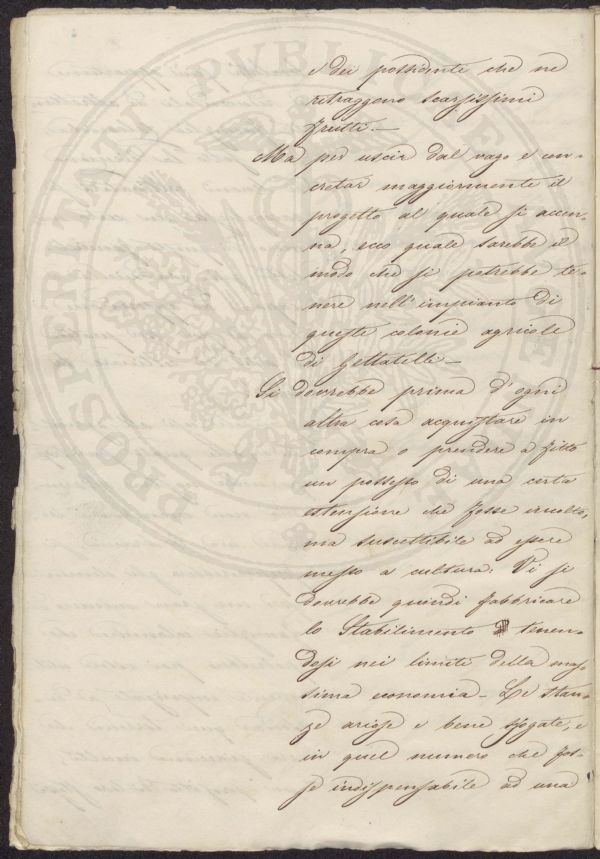 PROSPERITATI PVBLICAE A
e dei possidenti che ne
ritraggono scarsissimi
frutti. —
Ma per uscir dal vago e con-
cretar maggiormente il
progetto al quale si accen-
na, ecco quale sarebbe il
modo che si potrebbe te-
nere nell'impianto di
queste colonie agricole
di Gettatelli —
Si dovrebbe prima d'ogni
altra cosa acquistare in
compra o prendere a fitto
un possesso di una certa
estensione che fosse incolto,
ma suscettibile ad essere
messo a cultura: Vi si
dovrebbe quindi fabbricare
lo Stabilimento tenen-
dosi nei limiti della mas-
sima economia — Le stan-
ze ariose e bene sfogate, e
in quel numero che fos-
se indispensabile ad una